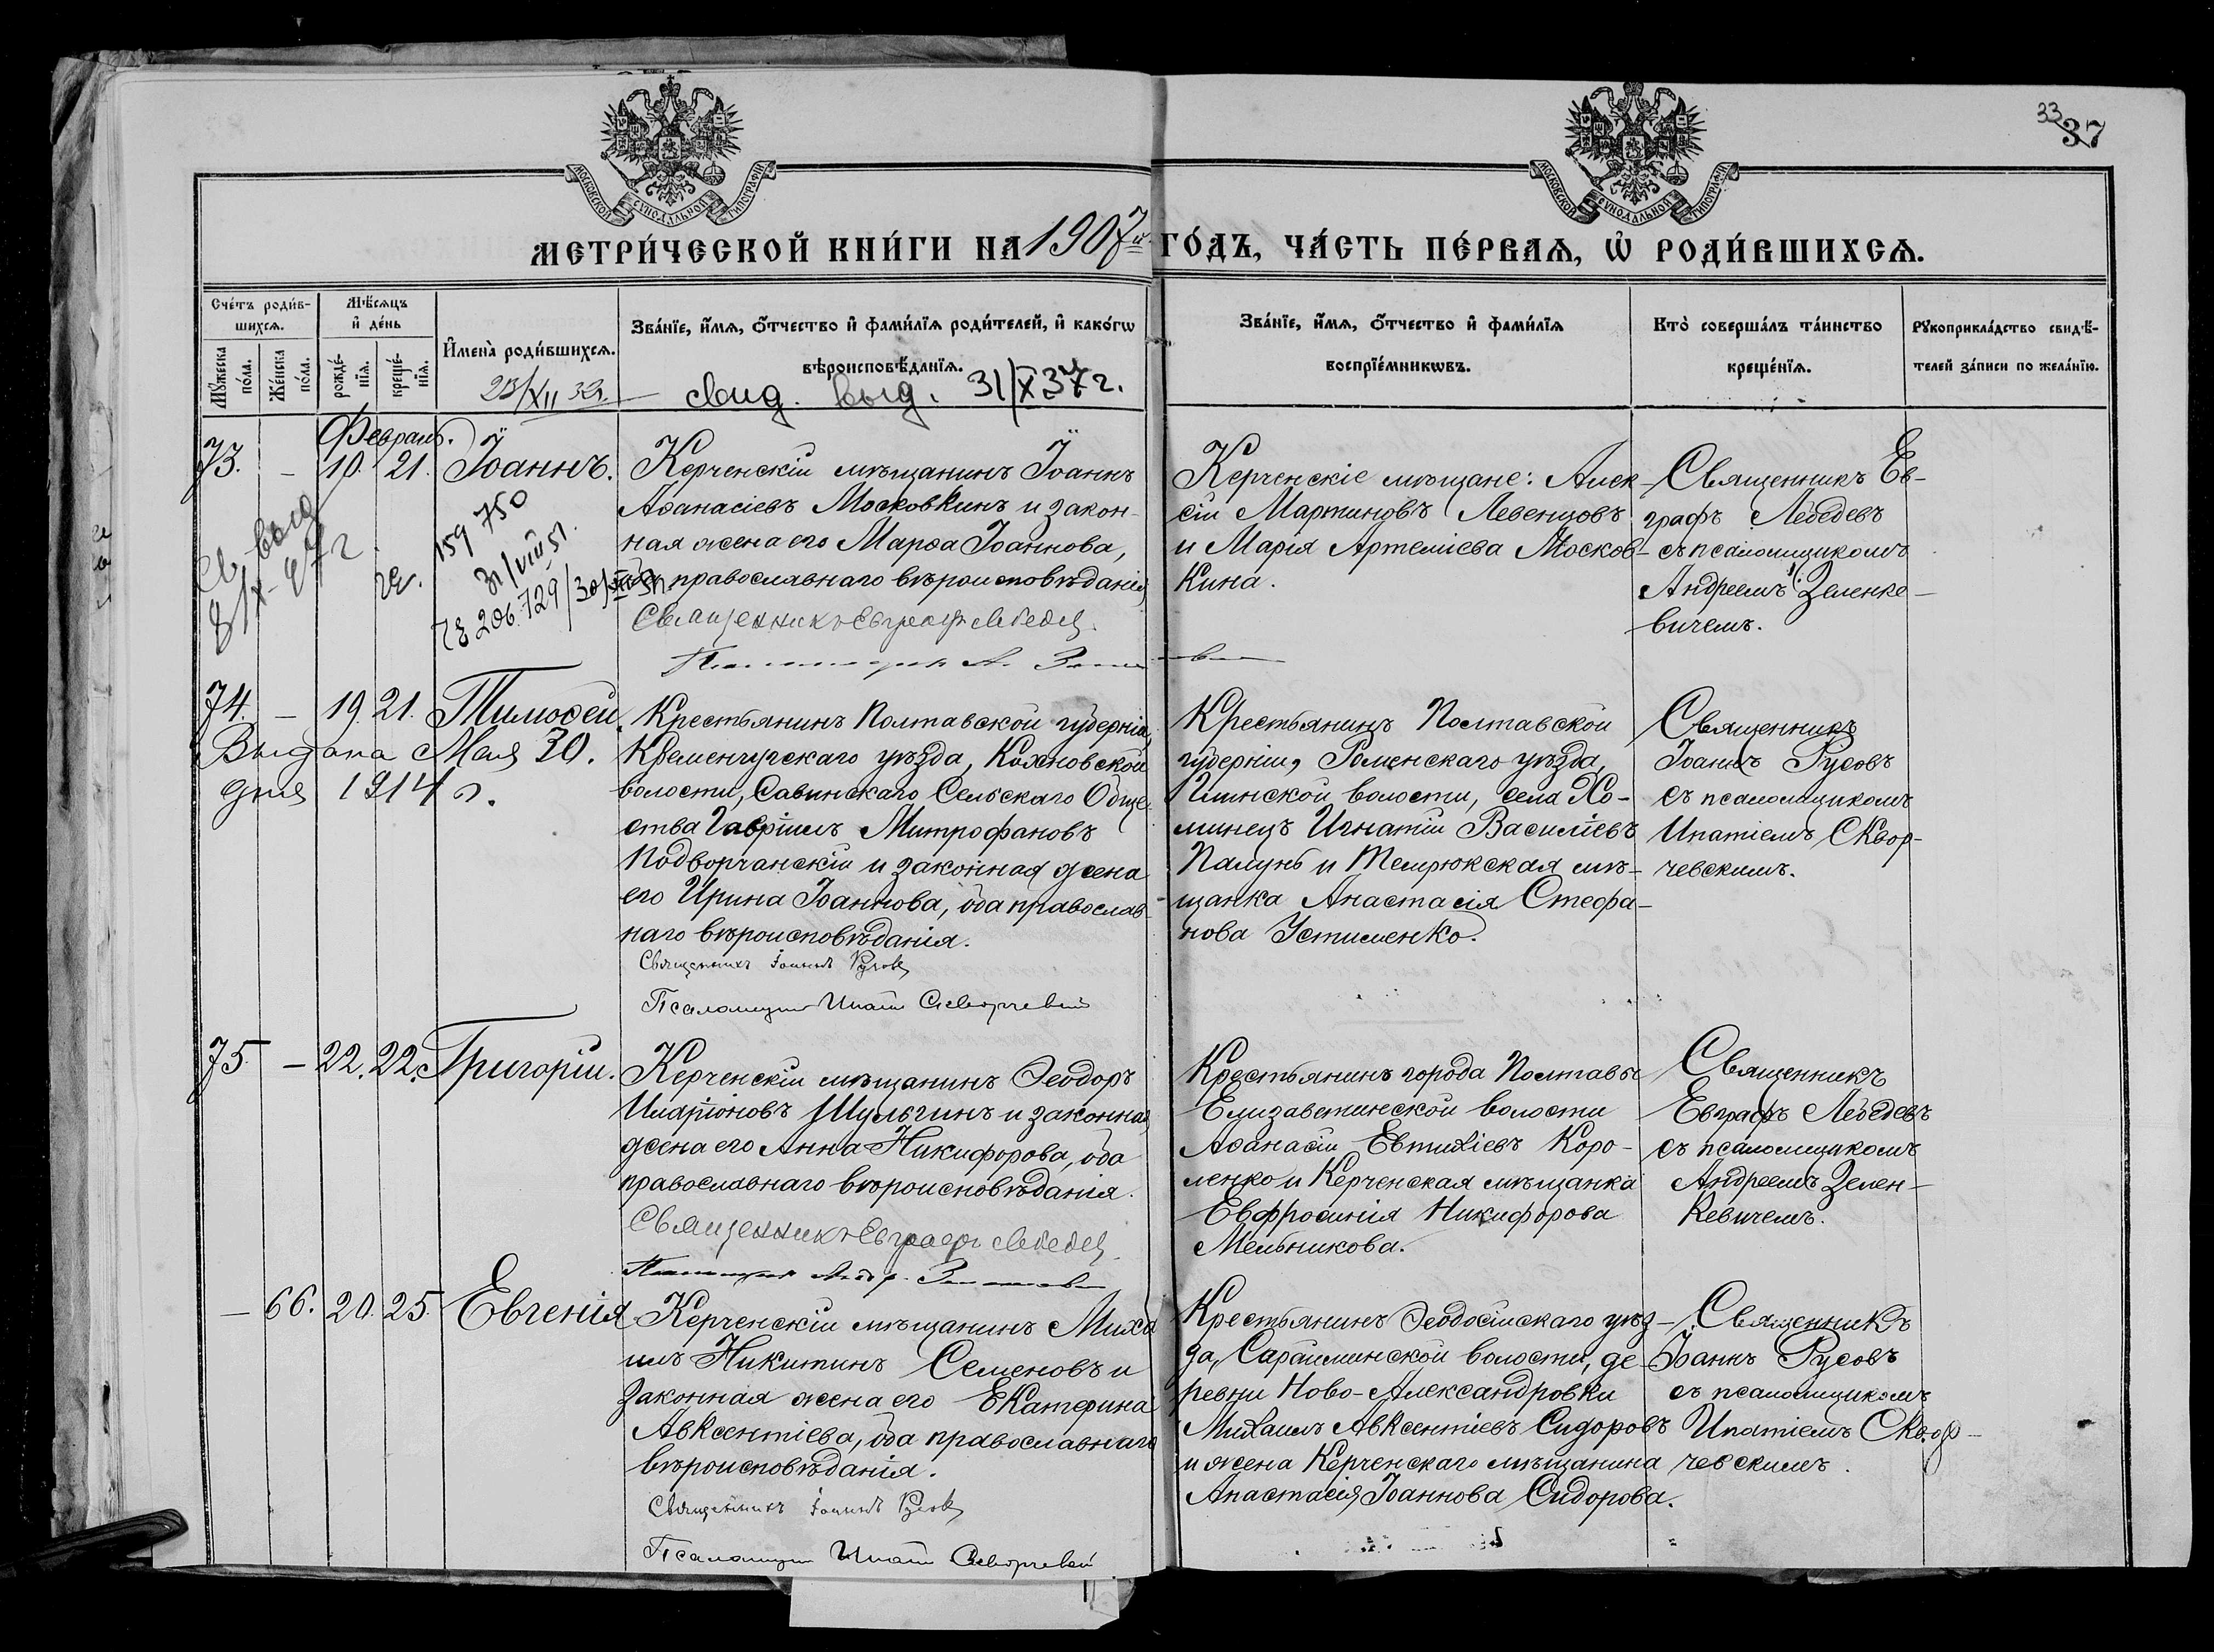 33/37
МОСКОВСКОЙ СѴНОДАЛЬНОЙ ТИПОГРАФІИ
МОСКОВСКОЙ СѴНОДАЛЬНОЙ ТИПОГРАФІИ
МЕТРИ́ЧЕСКОЙ КНИ́ГИ НА 1907й ГО́ДЪ, ЧА́СТЬ ПЕ́РВАѦ, Ѡ҆ РОДИ́ВШИХСѦ.
Сче́тъ роди́в-
шихсѧ.
Мꙋ́жеска по́ла.
Же́нска по́ла.
Мѣ́сѧцъ
и҆ де́нь
рожде́-
нїѧ.
креще́-
нїѧ.
И҆мена̀ роди́вшихсѧ.
Зва́нїе, и҆́мѧ, ѻ҆́тчество и҆ фами́лїѧ роди́телей, и҆ како́гѡ
вѣроисповѣ́данїѧ.
Зва́нїе, и҆́мѧ, ѻ҆́тчество и҆ фами́лїѧ
воспрїе́мникѡвъ.
Кто̀ соверша́лъ та́инство
креще́нїѧ.
Рꙋкоприкла́дство свидѣ́-
телей за́писи по жела́нїю.
свид. выд. 31/X 37 г.
Февраль.
73. – 10. 21. Іоаннъ.
Св. выд
8/X-47 г
159 750
31/VIII 51.
ЧЕ 206.729
Керченскій мѣщанинъ Іоаннъ
Аѳанасіевъ Московкинъ и закон-
ная жена его Марѳа Іоаннова,
православнаго вѣроисповѣданія
Священникъ Евграфъ Лебедев
Керченскіе мѣщане: Алек-
сій Мартиновъ Левенцовъ
и Марія Артеміева Москов-
кина.
Священникъ Ев-
графъ Лебедевъ
съ псаломщикомъ
Андреемъ Зеленке-
вичемъ.
74. – 19. 21. Тимоѳей.
Выдана Мая 30.
дня 1914 г.
Крестьянинъ Полтавской губерніи,
Кременчугскаго уѣзда, Кохновской
волости, Савинскаго Сельскаго Обще-
ства Гавріилъ Митрофановъ
Подворчанскій и законная жена
его Ирина Іоаннова, оба православ-
наго вѣроисповѣданія.
Священникъ Іоаннъ Русовъ
Псаломщикъ Ипатій Скворчевскій
Крестьянинъ Полтавской
губерніи, Роменскаго уѣзда,
волости, села Хо-
минецъ Игнатій Василіевъ
Палунь и Темрюкская мѣ-
щанка Анастасія Стефа-
нова Устименко.
Священникъ
Іоаннъ Русовъ
съ псаломщикомъ
Ипатіемъ Сквор-
чевскимъ.
75 – 22. 22. Григорій.
Керченскій мѣщанинъ Ѳеодоръ
Иларіоновъ Шульгинъ и законная
жена его Анна Никифорова, оба
православнаго вѣроисповѣданія.
Священникъ Евграфъ Лебедев
Крестьянинъ города Полтавы
Елизаветинской волости
Аѳанасій Евтихіевъ Коро-
ленко и Керченская мѣщанка
Евфросинія Никифорова
Мельникова.
Священникъ
Евграфъ Лебедевъ
съ псаломщикомъ
Андреемъ Зелен-
кевичемъ.
– 66. 20. 25. Евгенія
Керченскій мѣщанинъ Миха-
илъ Никитинъ Семеновъ и
законная жена его Екатерина
Авксентіева, оба православнаго
вѣроисповѣданія.
Священникъ Іоаннъ Русовъ
Псаломщикъ Ипатій Скворчевскій
Крестьянинъ Ѳеодосійскаго уѣз-
да, Сарайминской волости, де-
ревни Ново-Александровки
Михаилъ Авксентіевъ Сидоровъ
и жена Керченскаго мѣщанина
Анастасія Іоаннова Сидорова.
Священникъ
Іоаннъ Русовъ
съ псаломщикомъ
Ипатіемъ Сквор-
чевскимъ.